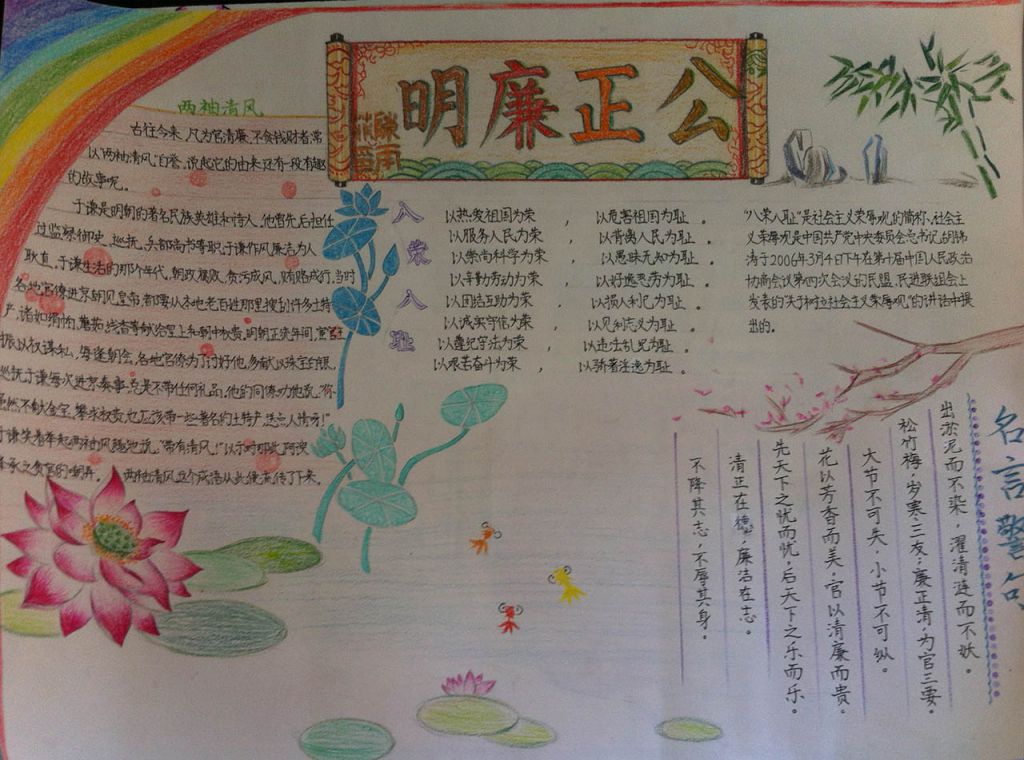 公正廉明
两袖清风
古往今来,凡为官清廉,不贪钱财者,常
以“两袖清风”自誉。说起它的由来还有一段有趣
的故事呢。
于谦是明朝的著名民族英雄和诗人。他曾先后担任
过监察御史、巡抚、兵部尚书等职,于谦作风廉洁为人
耿直。于谦生活的那个年代,朝政腐败,贪污成风,贿赂成行,当时
各地官僚进京朝见皇帝,都要从本地老百姓那里搜刮许多土特
产,诸如绢帕、蘑菇、线香等献给皇上和朝中权贵。明朝正统年间,宦官王
振以权谋私,每逢朝会,各地官僚为了讨好他,多献以珠宝白银,
巡抚于谦每次进京奏事,总是不带任何礼品。他的同僚劝他说,“你
虽然不献金宝、攀求权贵,也应该带一些著名的土特产送点人情才!”
于谦笑着举起两袖风趣地说,“带有清风!”以示对那些阿谀
奉承之贪官的嘲弄。两袖清风这个成语从此便流传了下来。
八荣八耻
以热爱祖国为荣,以危害祖国为耻。
以服务人民为荣,以背离人民为耻。
以崇尚科学为荣,以愚昧无知为耻。
以辛勤劳动为荣,以好逸恶劳为耻。
以团结互助为荣,以损人利己为耻。
以诚实守信为荣,以见利忘义为耻。
以遵纪守法为荣,以违法乱纪为耻。
以艰苦奋斗为荣,以骄奢淫逸为耻。
“八荣八耻”是社会主义荣辱观的简称、社会主
义荣辱观是中国共产党中央委员会总书记,胡锦
涛于2006年3月4日下午在第十届中国人民政治
协商会议第四次会议的民盟、民进联组会上
发表的“关于树立社会主义荣辱观”的讲话中提
出的。
名言警句
出淤泥而不染,濯清涟而不妖。
松竹梅,岁寒三友;廉正清,为官三要。
大节不可失,小节不可纵。
花以芳香而美,官以清廉而贵。
先天下之忧而忧,后天下之乐而乐。
清正在德,廉洁在志。
不降其志,不辱其身。